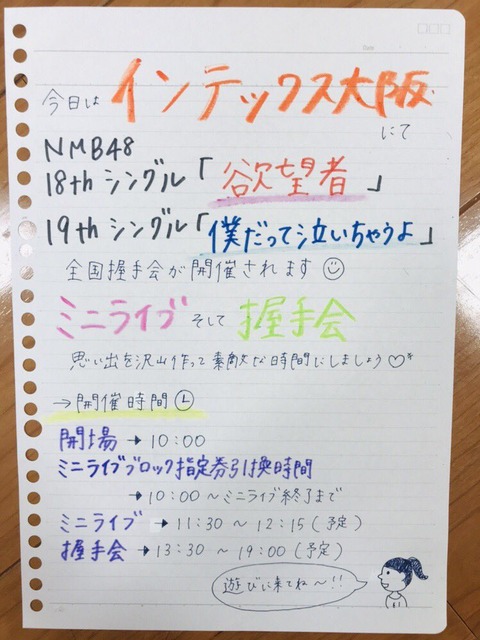 Date
今日は インテックス大阪
にて
NMB48
18th シングル「欲望者」
19th シングル「僕だって泣いちゃうよ」
全国握手会が開催されます
ミニライブ そして 握手会
思い出を沢山作って素敵な時間にしましょう♡*
→開催時間
開場 → 10:00
ミニライブブロック指定券引換時間
→10:00〜ミニライブ終了まで
ミニライブ → 11:30 〜 12:15 (予定)
握手会 → 13:30 〜 19:00 (予定)
遊びに来てね〜!!